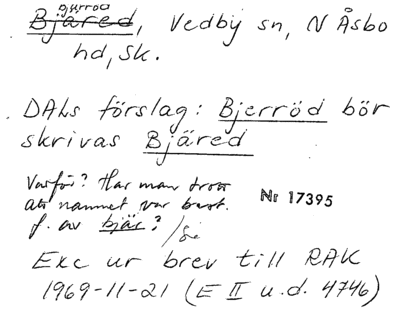 Bjärröd
Bjäred, Vedby sn, N Åsbo
hd, Sk.
DALs förslag: Bjerröd bör
skrivas Bjäred
Varför? Har man trott
att namnet var best.
f. av bjär?
Nr 17395
Exc ur brev till RAK
1969-11-21 (E II u.d. 4746)